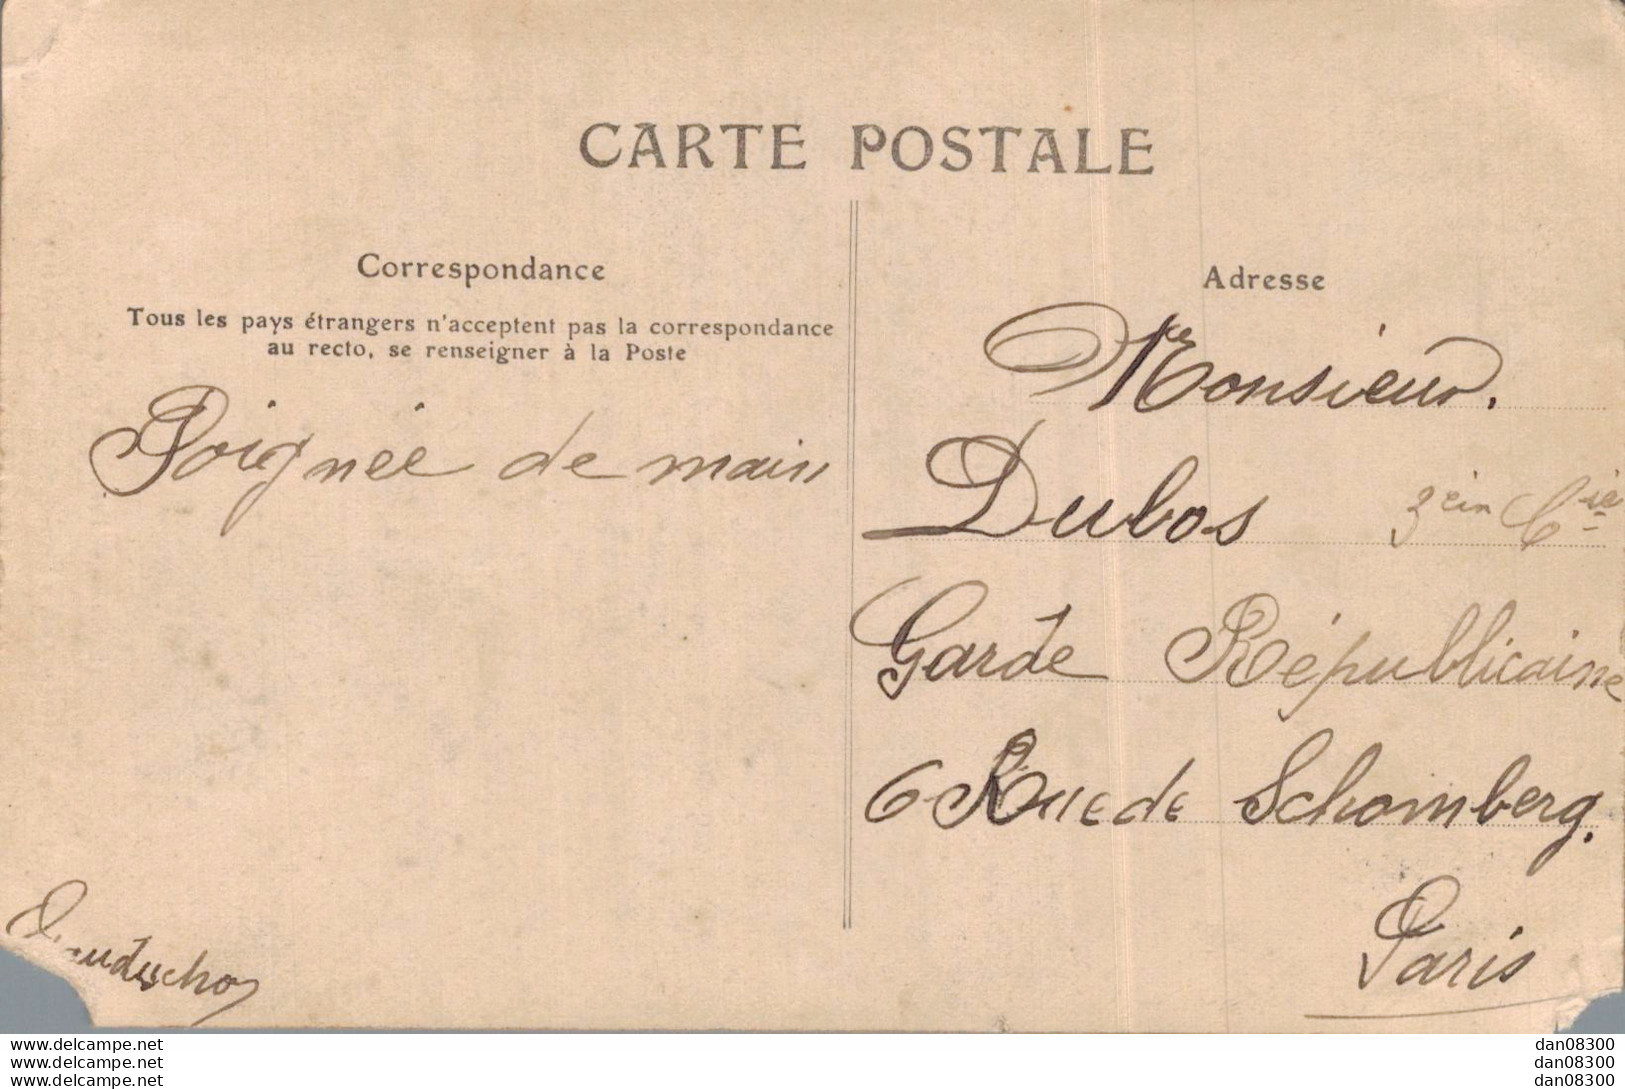 CARTE POSTALE
Correspondance
Tous les pays étrangers n'acceptent pas la correspondance
au recto, se renseigner à la Poste
Poignée de main
Adresse
Monsieur.
Dubos 3ein Cie
Garde Républicaine
6 Rue de Schomberg.
Paris
www.delcampe.net
www.delcampe.net
www.delcampe.net
dan08300
dan08300
dan08300